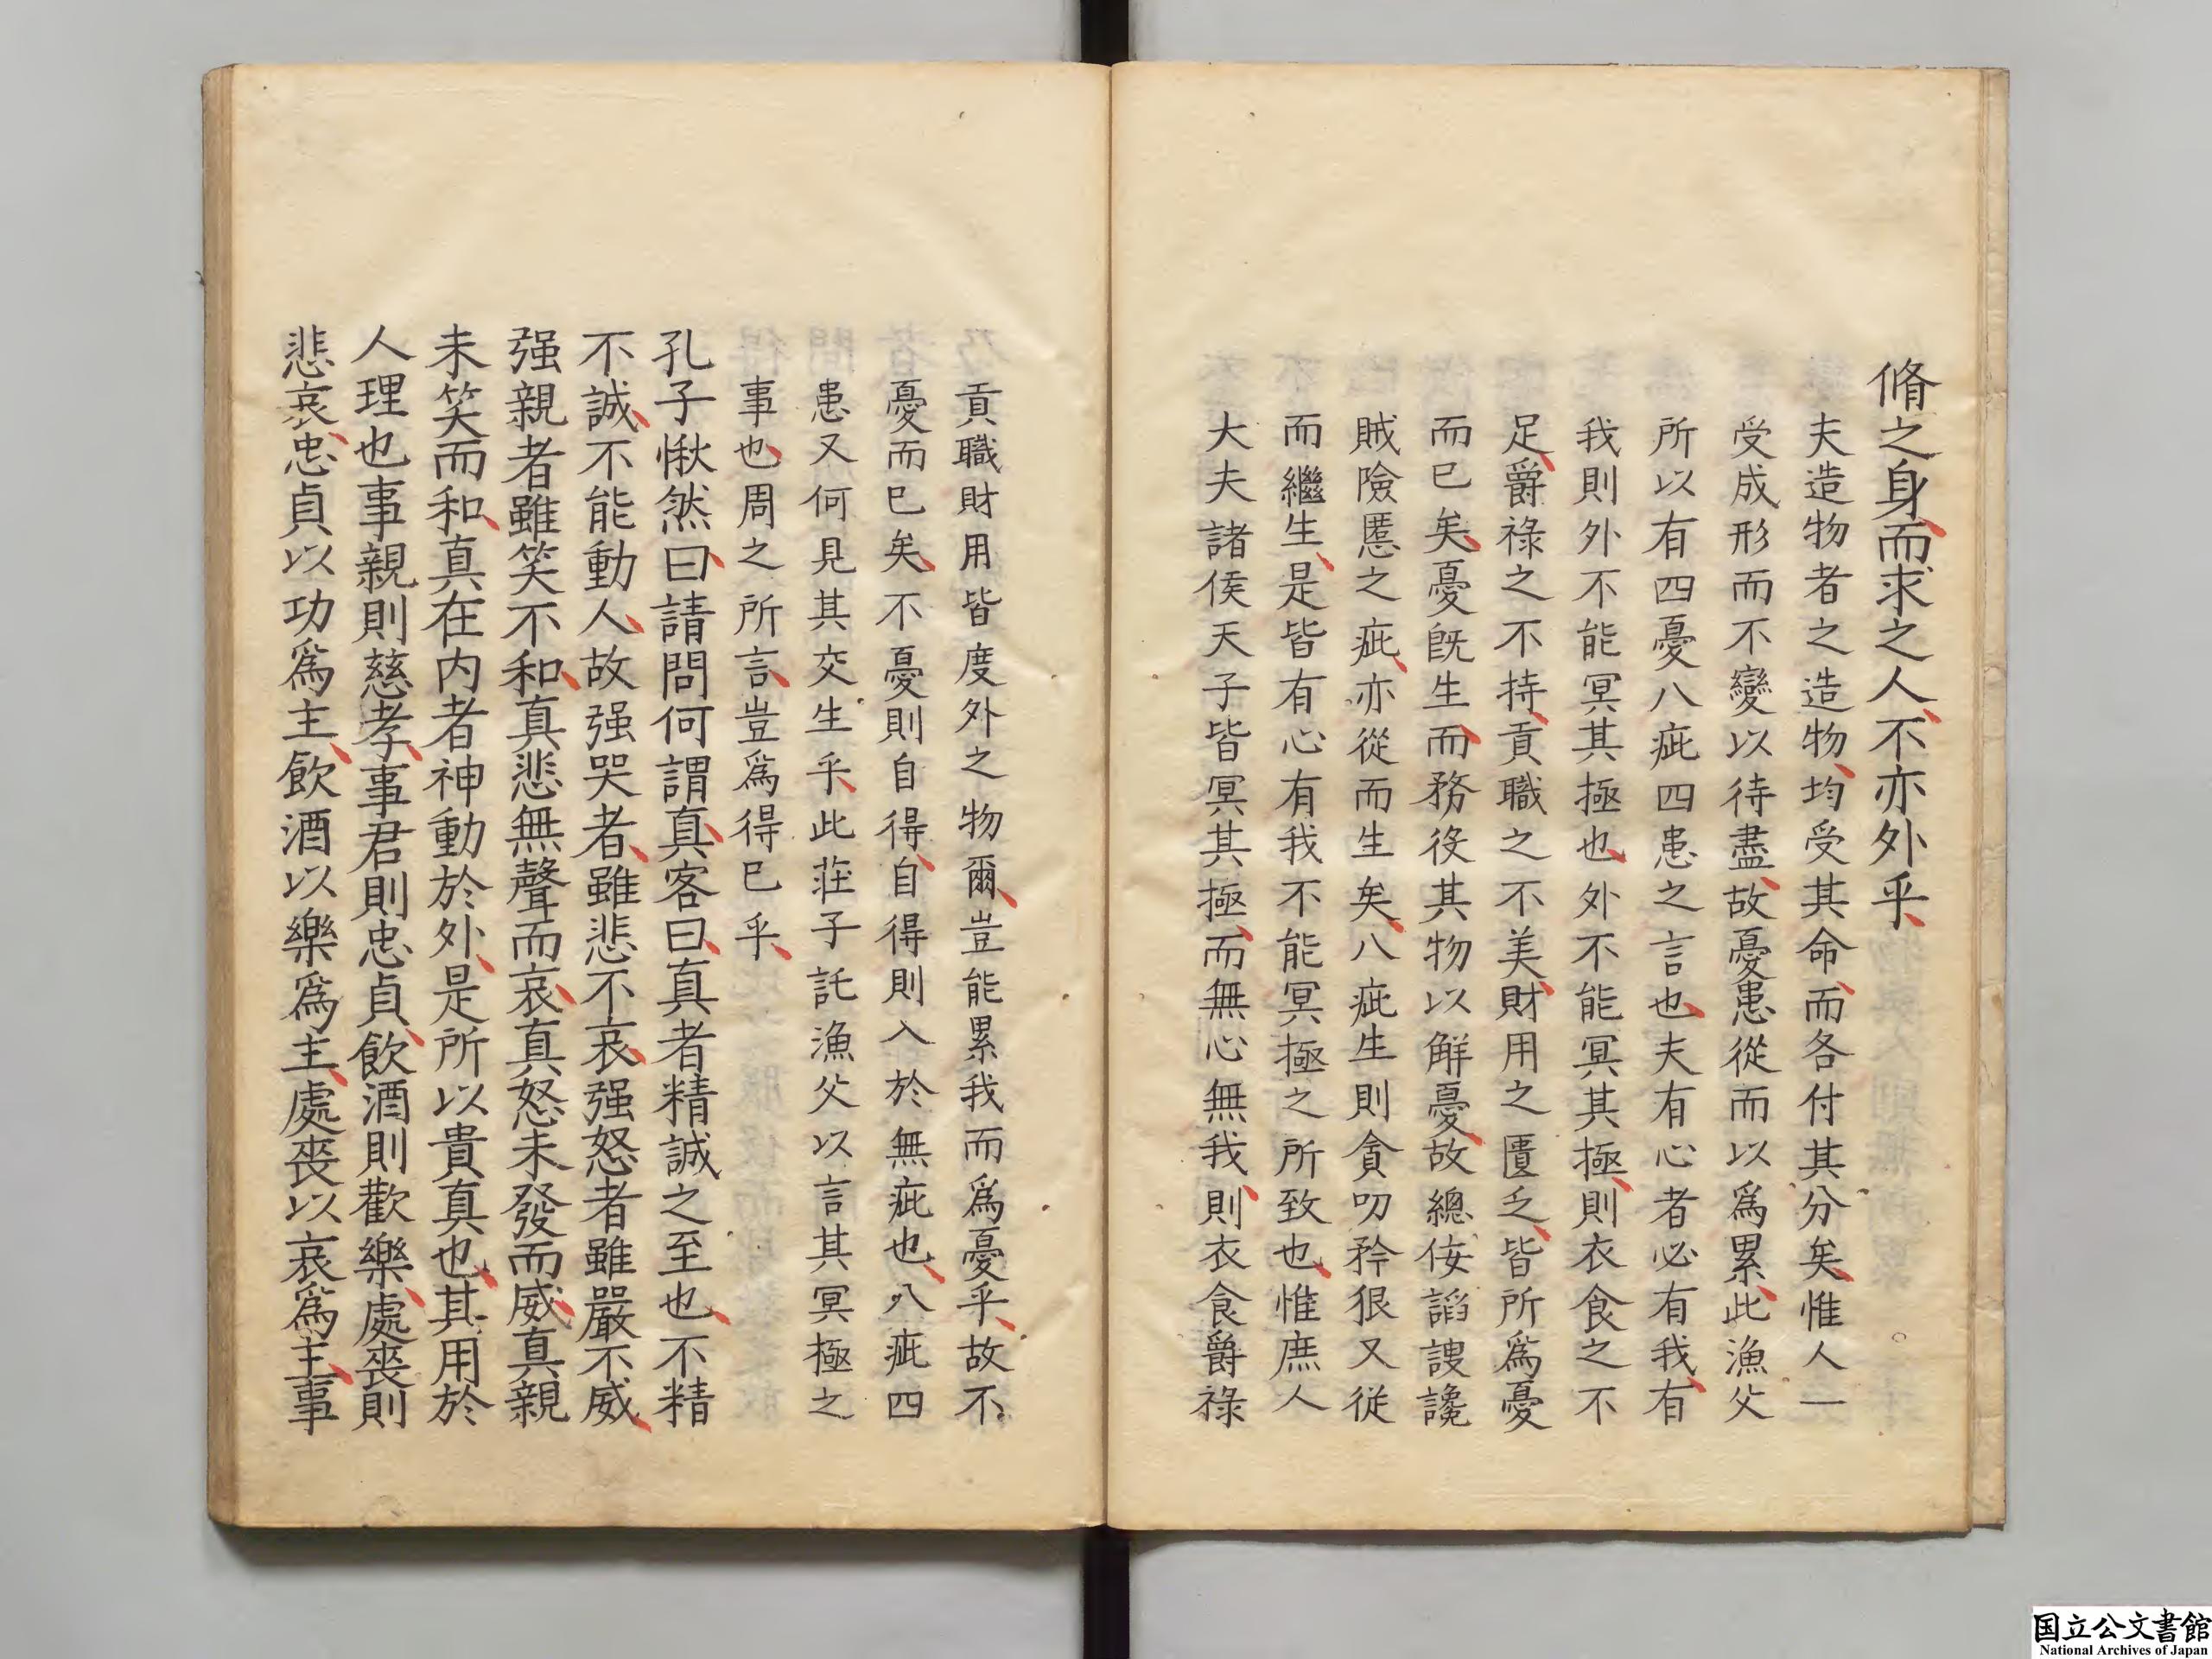 脩之身而求之人不亦外乎
夫造物者之造物均受其命而各付其分矣惟人一
受成形而不變以待盡故憂患從而以爲累此漁父
所以有四憂八疵四患之言也夫有心者必有我有
我則外不能冥其極也外不能冥其極則衣食之不
足爵祿之不持貢職之不美財用之匱乏皆所爲憂
而已矣憂旣生而務役其物以解憂故總侫諂謏讒
賊險慝之疵亦從而生矣八疵生則貪叨矜狠又從
而繼生是皆有心有我不能冥極之所致也惟庶人
大夫諸侯天子皆冥其極而無心無我則衣食爵祿
貢職財用皆度外之物爾豈能累我而爲憂乎故不
憂而已矣不憂則自得自得則入於無疵也八疵四
患又何見其交生乎此莊子託漁父以言其冥極之
事也周之所言豈爲得已乎
孔子愀然曰請問何謂真客曰真者精誠之至也不精
不誠不能動人故强哭者雖悲不哀强怒者雖嚴不威
强親者雖笑不和真悲無聲而哀真怒未發而威真親
未笑而和真在内者神動於外是所以貴真也其用於
人理也事親則慈孝事君則忠貞飲酒則歡樂處喪則
悲哀忠貞以功爲主飲酒以樂爲主處喪以哀爲主事
国立公文書館
National Archives of Japan